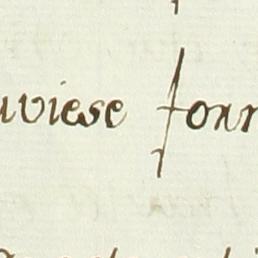 uviese forr